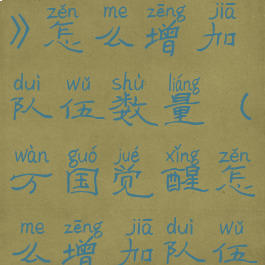 zěn me zēng jiā
》怎么增加
duì wǔ shù liáng
队伍数量（
wàn guó jué xǐng zěn
万国觉醒怎
me zēng jiā duì wǔ
么增加队伍